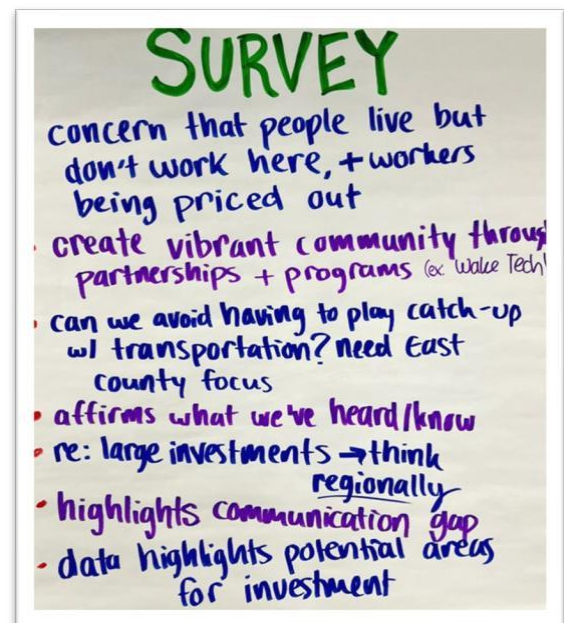 SURVEY
concern that people live but
don't work here, + workers
being priced out
• create vibrant community throug
partnerships + programs (ex. Wake Tech)
• can we avoid having to play catch-up
w/ transportation? need East
county focus
• affirms what we've heard/know
• re: large investments → think
regionally
• highlights communication gap
• data highlights potential areas
for investment